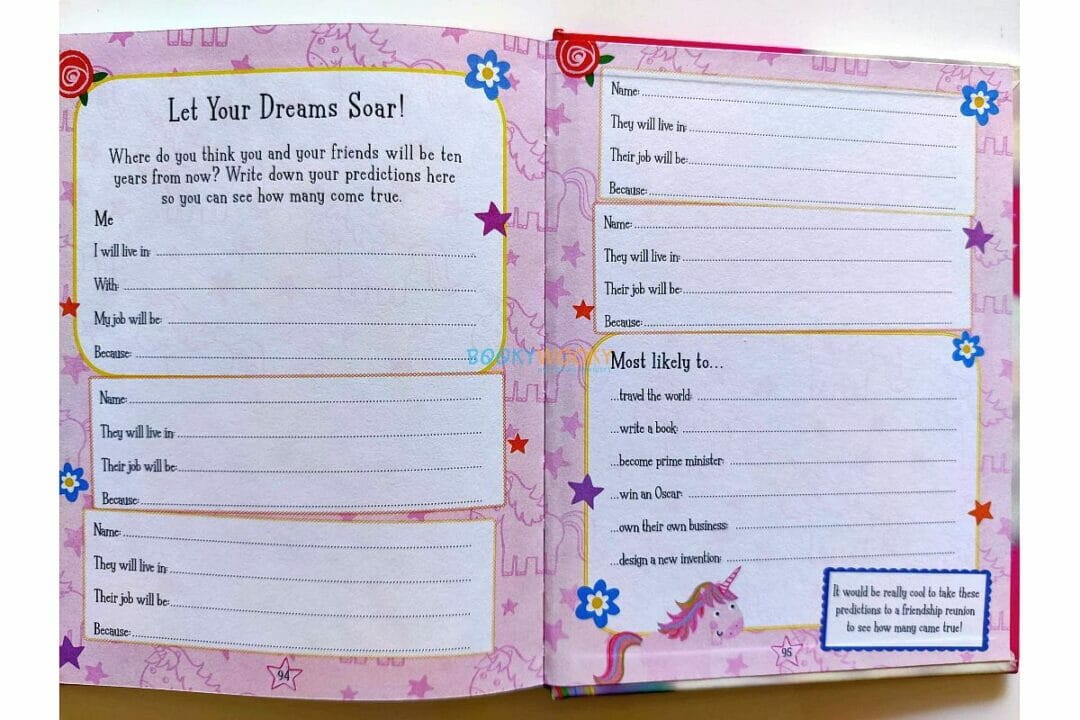 Let Your Dreams Soar!
Where do you think you and your friends will be ten
years from now? Write down your predictions here
so you can see how many come true.
Me
I will live in:
With:
My job will be:
Because:
Name:
They will live in:
Their job will be:
Because:
Name:
They will live in:
Their job will be:
Because:
94
Name:
They will live in:
Their job will be:
Because:
Name:
They will live in:
Their job will be:
Because:
BOOKYWOOKY
Most likely to...
...travel the world:
...write a book:
...become prime minister:
...win an Oscar:
...own their own business:
...design a new invention:
It would be really cool to take these
predictions to a friendship reunion
to see how many came true!
95